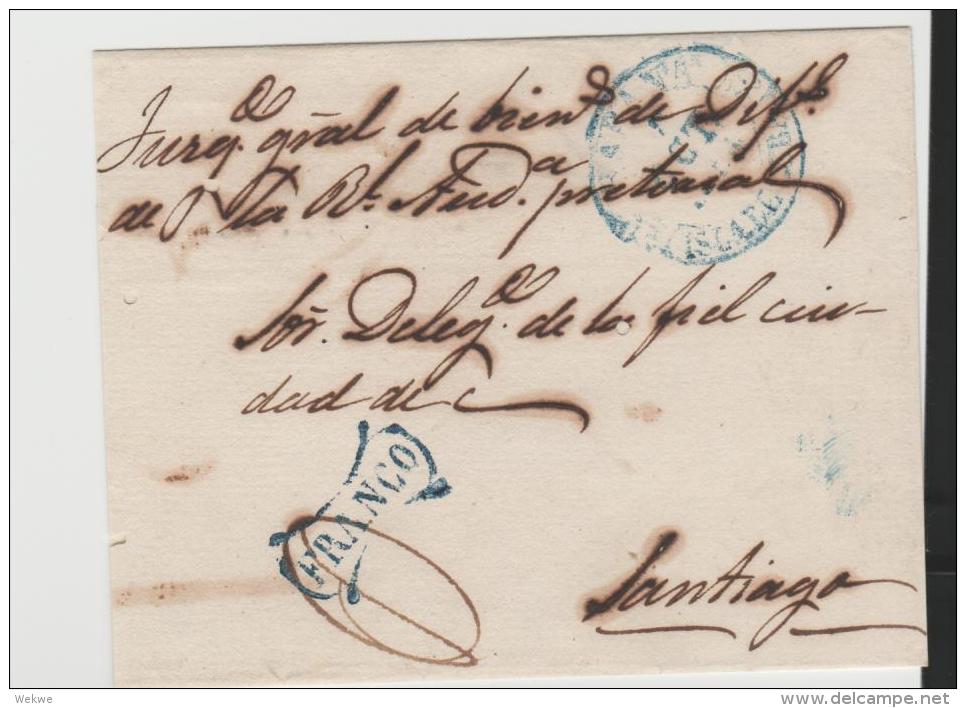 Juzg.do gñal de bien.s de Dif.s
de la Rl. Aud.a pretorial
Sōr. Deleg.do de la fiel ciu-
dad de
FRANCO
Santiago
Wekwe
www.delcampe.net